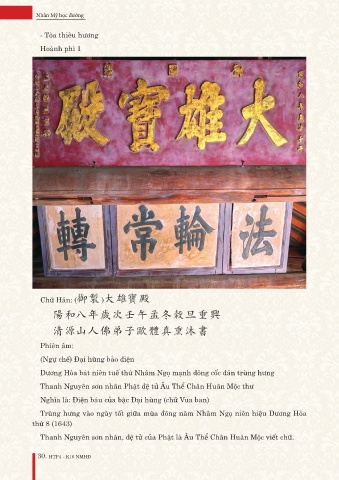 Nhân Mỹ học đường
- Tòa thiêu hương
Hoành phi 1
大雄寶殿
法輪常轉
Chữ Hán: (御製)大雄寶殿
陽和八年歲次壬午孟冬穀旦重興
清源山人佛弟子歐體真熏沐書
Phiên âm:
(Ngự chế) Đại hùng bảo điện
Dương Hòa bát niên tuế thứ Nhâm Ngọ mạnh đông cốc đán trùng hưng
Thanh Nguyên sơn nhân Phật đệ tử Âu Thể Chân Huân Mộc thư
Nghĩa là: Điện báu của bậc Đại hùng (chữ Vua ban)
Trùng hưng vào ngày tốt giữa mùa đông năm Nhâm Ngọ niên hiệu Dương Hòa
thứ 8 (1643)
Thanh Nguyên sơn nhân, đệ tử của Phật là Âu Thể Chân Huân Mộc viết chữ.
30. HTP4 - K18 NMHĐ